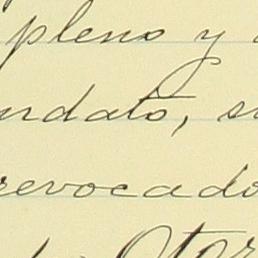 pleno y
ndato, s
revocado
Otor